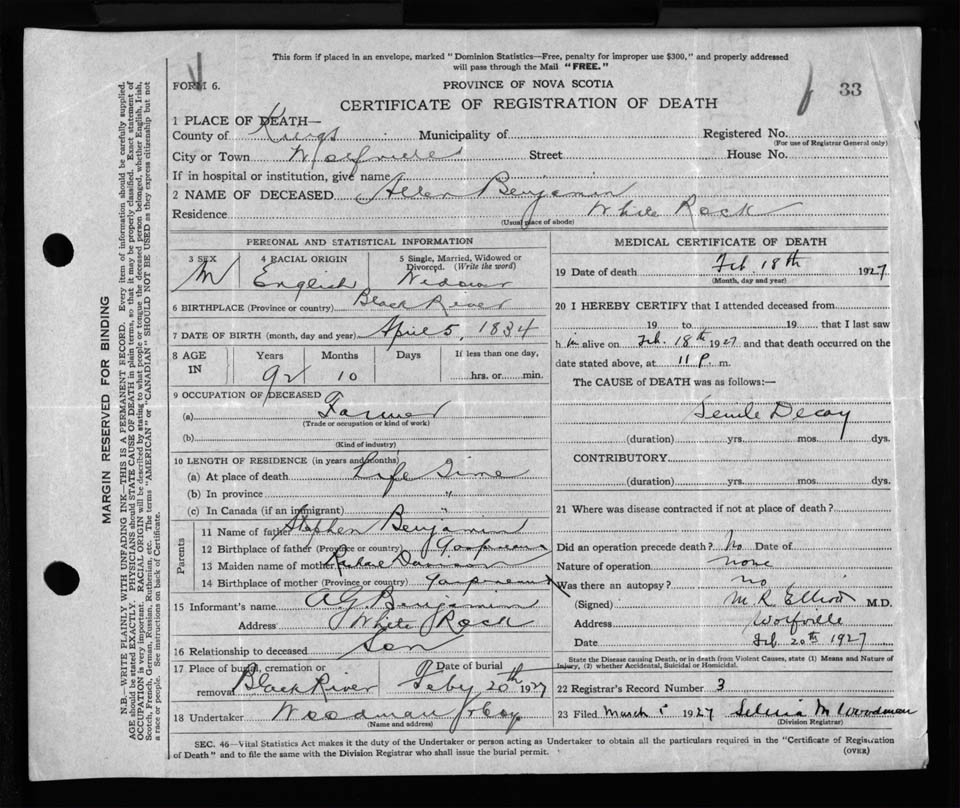 This form if placed in an envelope, marked "Dominion Statistics—Free, penalty for improper use $300," and properly addressed
will pass through the Mail "FREE."
FORM 6.
PROVINCE OF NOVA SCOTIA
33
CERTIFICATE OF REGISTRATION OF DEATH
1 PLACE OF DEATH—
County of Kings Municipality of Registered No.
(For use of Registrar General only)
City or Town Wolfville Street House No.
If in hospital or institution, give name
2 NAME OF DECEASED Allen Benjamin
Residence White Rock
(Usual place of abode)
PERSONAL AND STATISTICAL INFORMATION
3 SEX M
4 RACIAL ORIGIN English
5 Single, Married, Widowed or
Divorced. (Write the word)
Widower
6 BIRTHPLACE (Province or country) Black River
7 DATE OF BIRTH (month, day and year) April 5, 1834
8 AGE IN
Years Months Days If less than one day,
92 10 hrs. or min.
9 OCCUPATION OF DECEASED
(a) Farmer
(Trade or occupation or kind of work)
(b)
(Kind of industry)
10 LENGTH OF RESIDENCE (in years and months)
(a) At place of death Life Time
(b) In province "
(c) In Canada (if an immigrant) "
Parents
11 Name of father Stephen Benjamin
12 Birthplace of father (Province or country)
13 Maiden name of mother
14 Birthplace of mother (Province or country)
15 Informant's name A G Benjamin
Address White Rock
16 Relationship to deceased Son
17 Place of burial, cremation or
removal Black River
Date of burial
Feby 20th 1927
18 Undertaker Woodman
(Name and address)
MEDICAL CERTIFICATE OF DEATH
19 Date of death Feb. 18th 1927
(Month, day and year)
20 I HEREBY CERTIFY that I attended deceased from
19 to 19 that I last saw
h im alive on Feb. 18th 1927 and that death occurred on the
date stated above, at 11 P. m.
The CAUSE of DEATH was as follows:—
Senile Decay
(duration) yrs. mos. dys.
CONTRIBUTORY
(duration) yrs. mos. dys.
21 Where was disease contracted if not at place of death?
Did an operation precede death? No Date of
Nature of operation none
Was there an autopsy? no
(Signed) M. R. Elliott M.D.
Address Wolfville
Date Feb 20th 1927
State the Disease causing Death, or in death from Violent Causes, state (1) Means and Nature of
Injury, (2) whether Accidental, Suicidal or Homicidal.
22 Registrar's Record Number 3
23 Filed March 1927 M Woodman
(Division Registrar)
SEC. 46—Vital Statistics Act makes it the duty of the Undertaker or person acting as Undertaker to obtain all the particulars required in the "Certificate of Registration
of Death" and to file the same with the Division Registrar who shall issue the burial permit. (OVER)
MARGIN RESERVED FOR BINDING
N.B.—WRITE PLAINLY WITH UNFADING INK—THIS IS A PERMANENT RECORD. Every item of information should be carefully supplied.
AGE should be stated EXACTLY. PHYSICIANS should STATE CAUSE OF DEATH in plain terms, so that it may be properly classified. Exact statement of
OCCUPATION is very important. RACIAL ORIGIN will be described by stating to what people or tongue the deceased person belonged, whether English, Irish,
Scotch, French, German, Russian, Ruthenian, etc. The terms "AMERICAN" or "CANADIAN" SHOULD NOT BE USED as they express citizenship but not
a race or people. See instructions on back of Certificate.